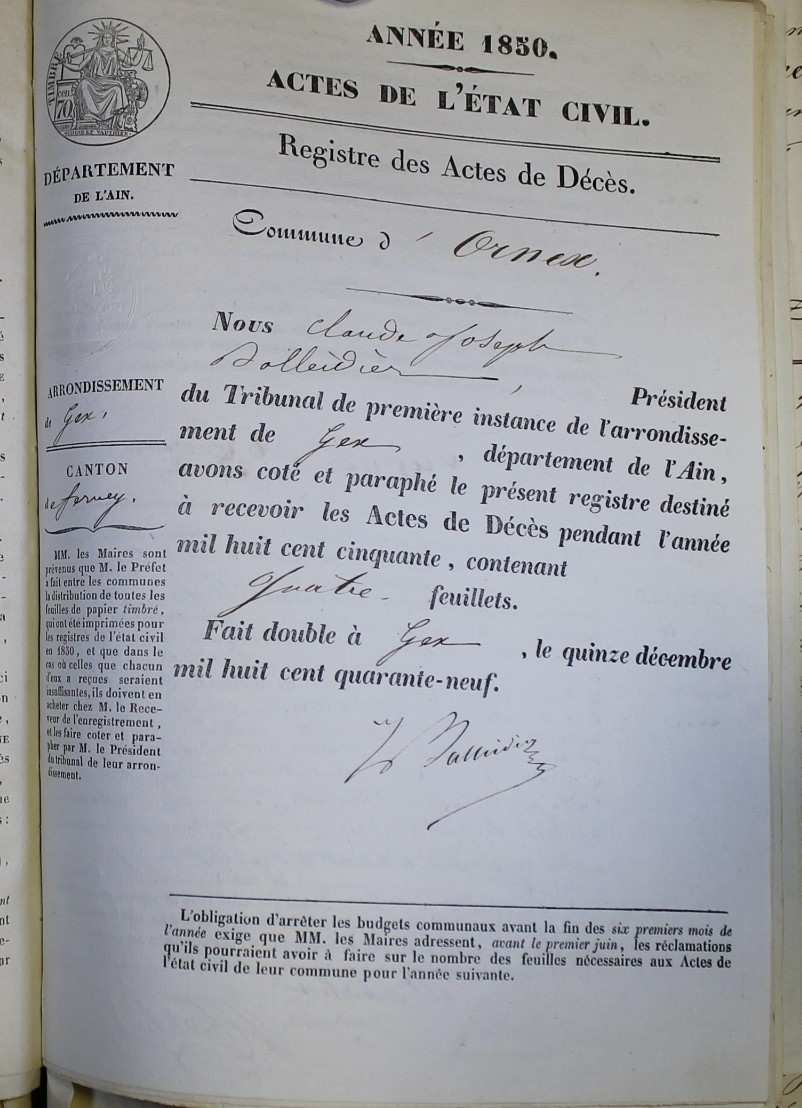 ANNÉE 1850.
ACTES DE L'ÉTAT CIVIL.
Registre des Actes de Décès.
Commune d'Ornex.
TIMBRE
cen 70
DÉPARTEMENT
DE L'AIN.
ARRONDISSEMENT
de Gex,
CANTON
de ferney.
MM. les Maires sont
prévenus que M. le Préfet
a fait entre les communes
la distribution de toutes les
feuilles de papier timbré,
qui ont été imprimées pour
les registres de l'état civil
en 1850, et que dans le
cas où celles que chacun
d'eux a reçues seraient
insuffisantes, ils doivent en
acheter chez M. le Rece-
veur de l'enregistrement,
et les faire coter et para-
pher par M. le Président
du tribunal de leur arron-
dissement.
Nous Claude Joseph
Balleidier, Président
du Tribunal de première instance de l'arrondisse-
ment de Gex, département de l'Ain,
avons coté et paraphé le présent registre destiné
à recevoir les Actes de Décès pendant l'année
mil huit cent cinquante, contenant
Quatre feuillets.
Fait double à Gex, le quinze décembre
mil huit cent quarante-neuf.
Balleidier
L'obligation d'arrêter les budgets communaux avant la fin des six premiers mois de
l'année exige que MM. les Maires adressent, avant le premier juin, les réclamations
qu'ils pourraient avoir à faire sur le nombre des feuilles nécessaires aux Actes de
l'état civil de leur commune pour l'année suivante.